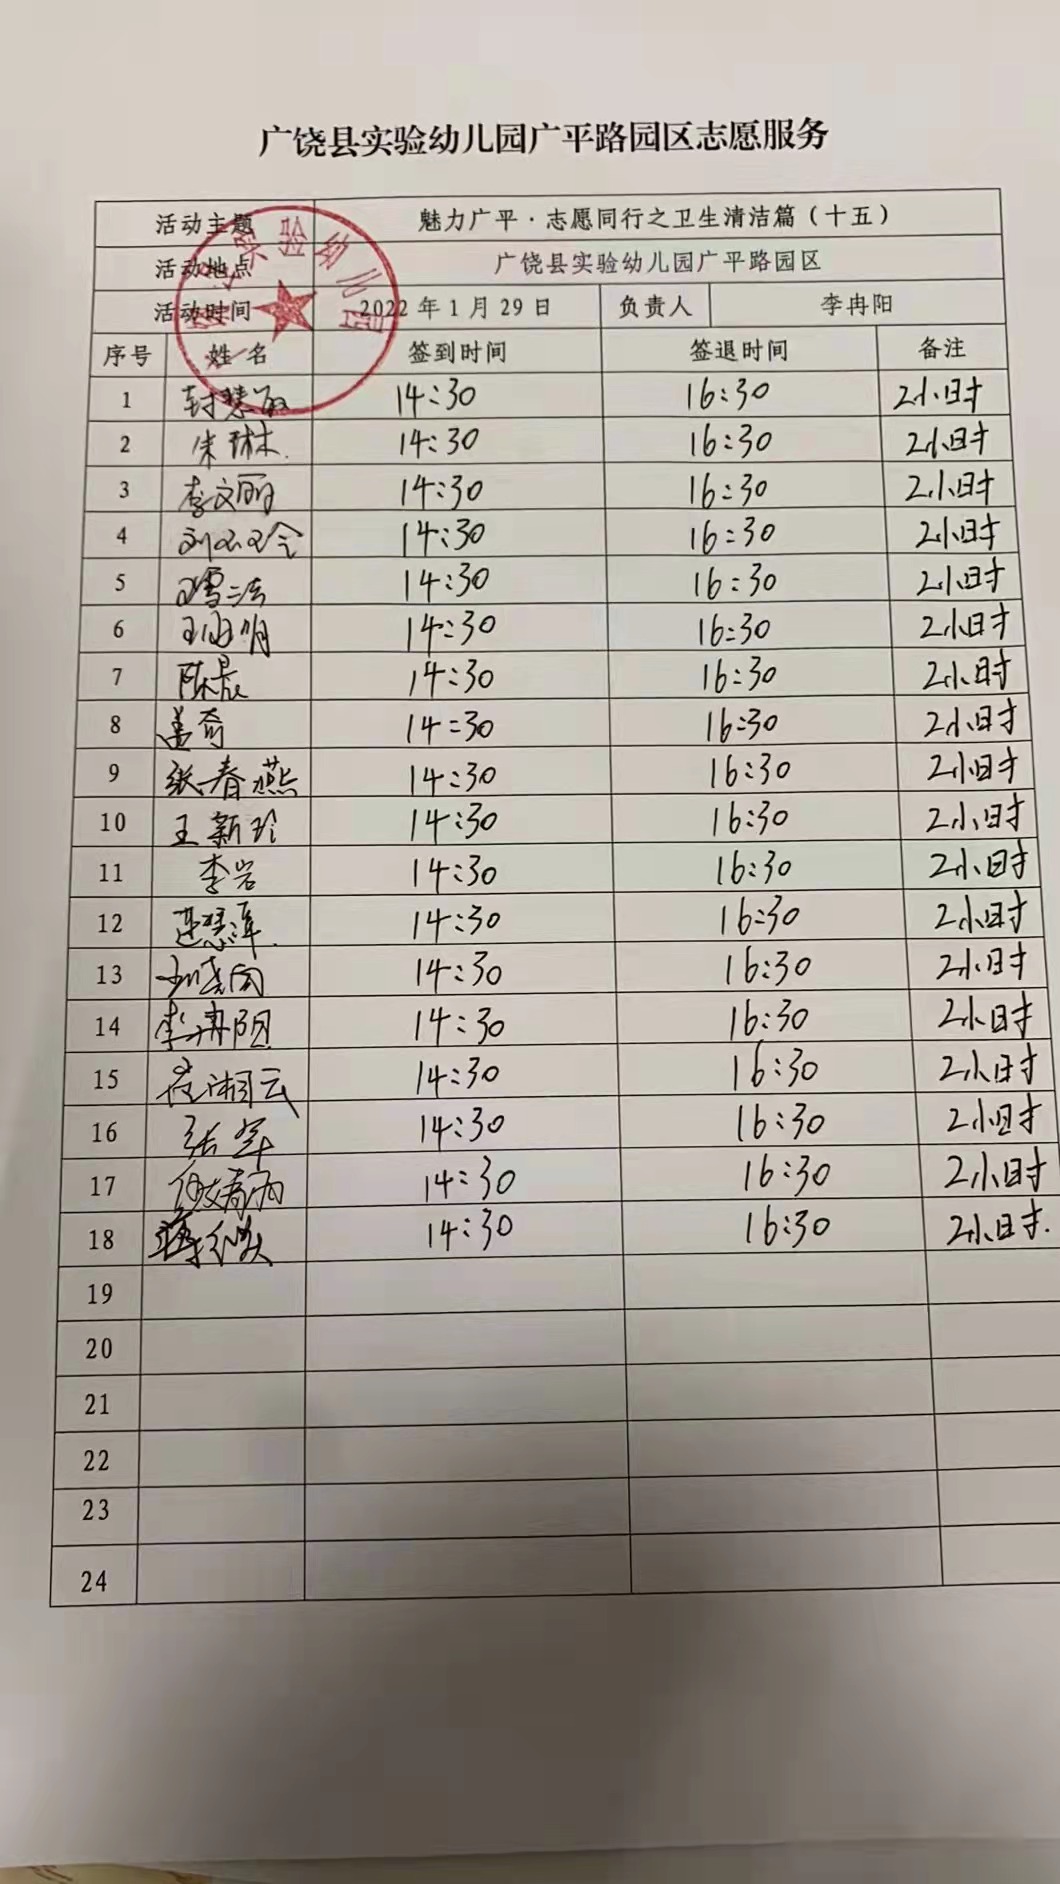 广饶县实验幼儿园广平路园区志愿服务
活动主题 魅力广平·志愿同行之卫生清洁篇（十五）
活动地点 广饶县实验幼儿园广平路园区
活动时间 2022年1月29日 负责人 李冉阳
序号 姓名 签到时间 签退时间 备注
1 封慧敏 14:30 16:30 2小时
2 朱琳 14:30 16:30 2小时
3 李文丽 14:30 16:30 2小时
4 14:30 16:30 2小时
5 14:30 16:30 2小时
6 14:30 16:30 2小时
7 陈晨 14:30 16:30 2小时
8 盖奇 14:30 16:30 2小时
9 张春燕 14:30 16:30 2小时
10 王新玲 14:30 16:30 2小时
11 李岩 14:30 16:30 2小时
12 14:30 16:30 2小时
13 14:30 16:30 2小时
14 李冉阳 14:30 16:30 2小时
15 崔湘云 14:30 16:30 2小时
16 张军 14:30 16:30 2小时
17 14:30 16:30 2小时
18 14:30 16:30 2小时.
19
20
21
22
23
24